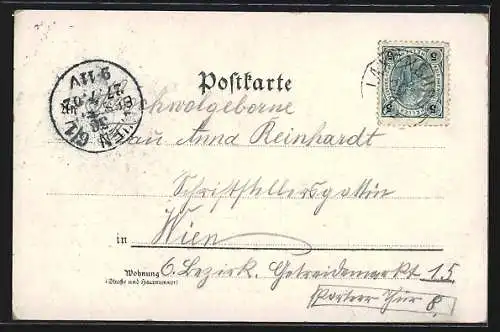 Postkarte
Hochwolgeborne
Frau Anna Reinhardt
Schriftstellersgattin
in Wien
Wohnung
(Straße und Hausnummer)
6. Bezirk. Getreidemarkt 15
Parterr Thür 8.
WIEN
9-11V
5 5
5 5